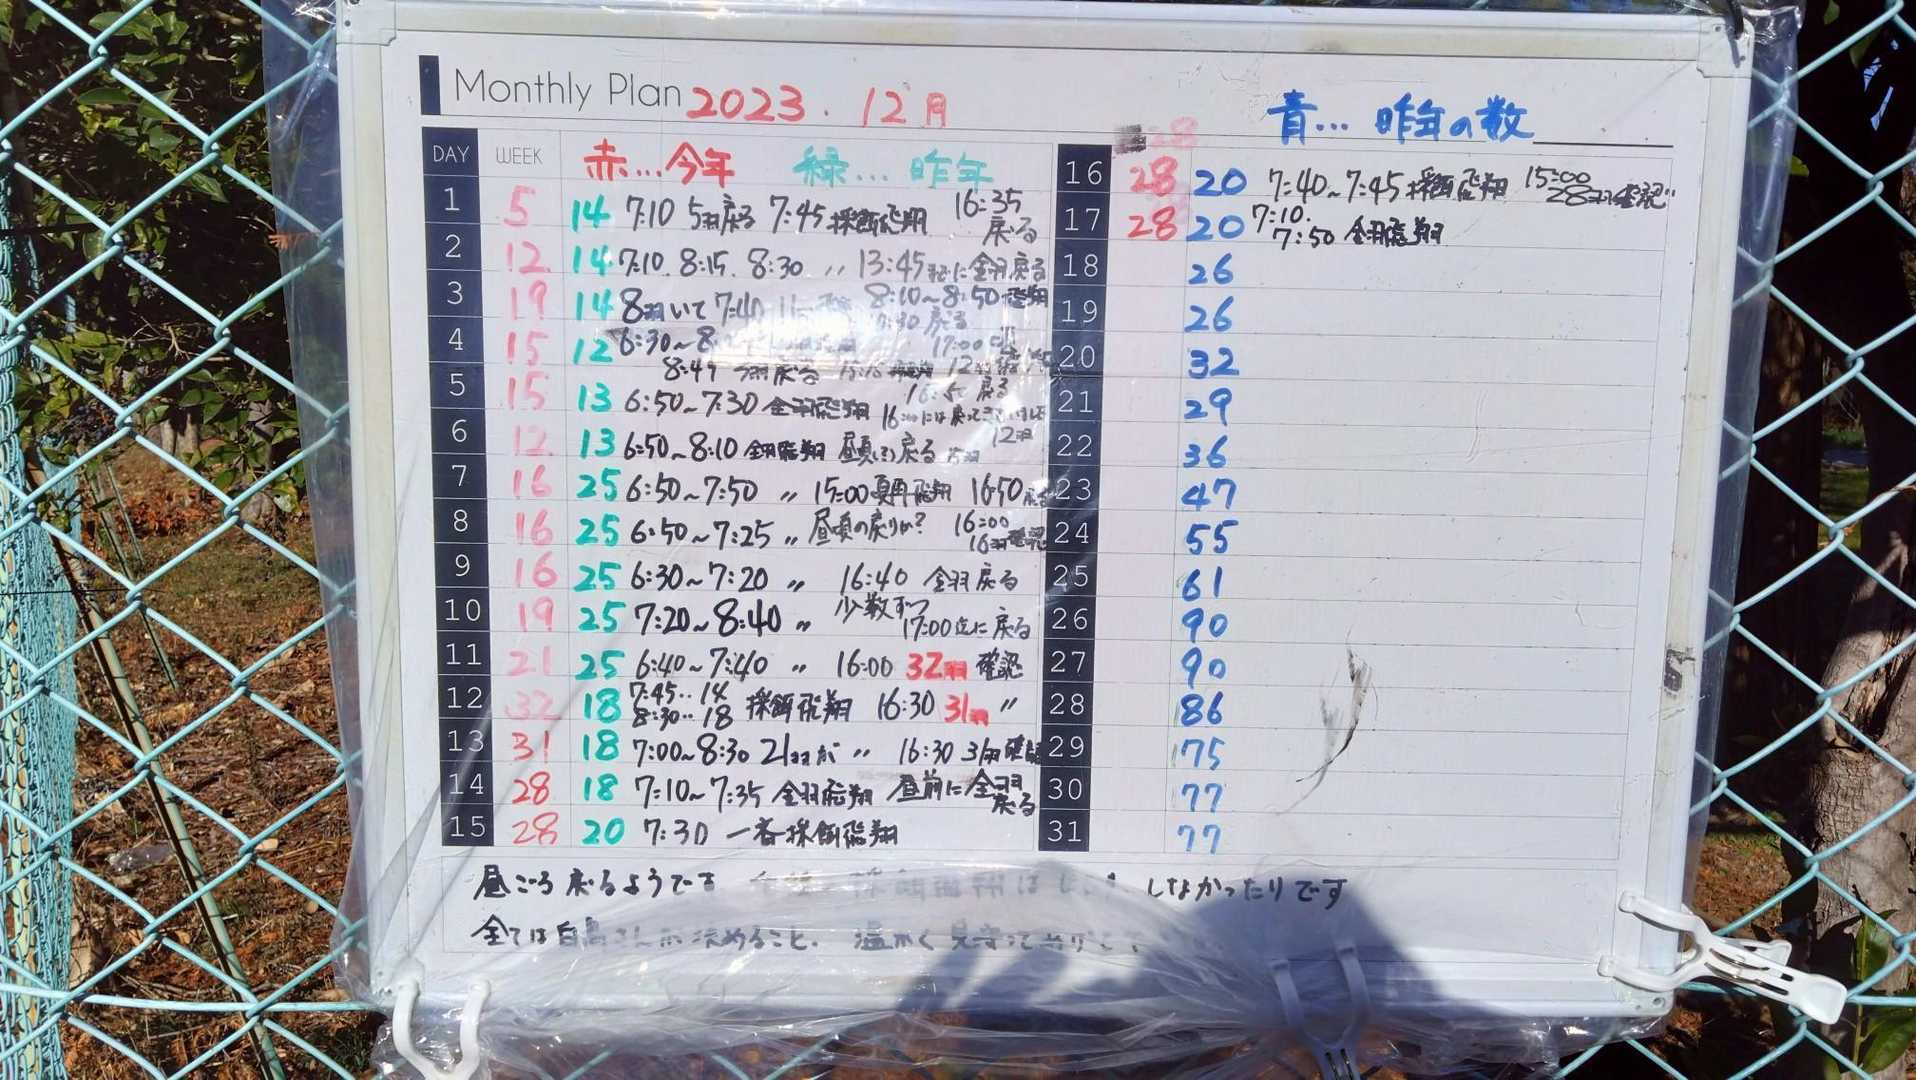 Monthly Plan 2023. 12月
青... 昨年の数
DAY WEEK 赤...今年 緑...昨年
1 5 14 7:10 5羽戻る 7:45 採餌飛翔 16:35 戻る
2 12 14 7:10. 8:15. 8:30 〃 13:45 全羽戻る
3 19 14 8羽いて 7:40 8:10~8:50 飛翔
戻る
4 15 12 6:30~8: 17:00
8:47 戻る
5 15 13 6:50~7:30 全羽飛翔 戻る
6 12 13 6:50~8:10 全羽飛翔 昼頃 戻る 12羽
7 16 25 6:50~7:50 〃 15:00 再飛翔 16:50
8 16 25 6:50~7:25 〃 昼頃の戻りか? 16:00 16羽確認
9 16 25 6:30~7:20 〃 16:40 全羽戻る
10 19 25 7:20~8:40 〃 少数ずつ 17:00迄に戻る
11 21 25 6:40~7:40 〃 16:00 32羽 確認
12 32 18 7:45‥14 8:30‥18 採餌飛翔 16:30 31羽 〃
13 31 18 7:00~8:30 21羽が 〃 16:30 31羽 確認
14 28 18 7:10~7:35 全羽飛翔 昼前に全羽戻る
15 28 20 7:30 一斉採餌飛翔
16 28 20 7:40~7:45 採餌飛翔 15:00 28羽確認
17 28 20 7:10. 7:50 全羽飛翔
18 26
19 26
20 32
21 29
22 36
23 47
24 55
25 61
26 90
27 90
28 86
29 75
30 77
31 77
昼ごろ戻るようです しなかったりです
全ては白鳥さんが決めること、温かく見守って